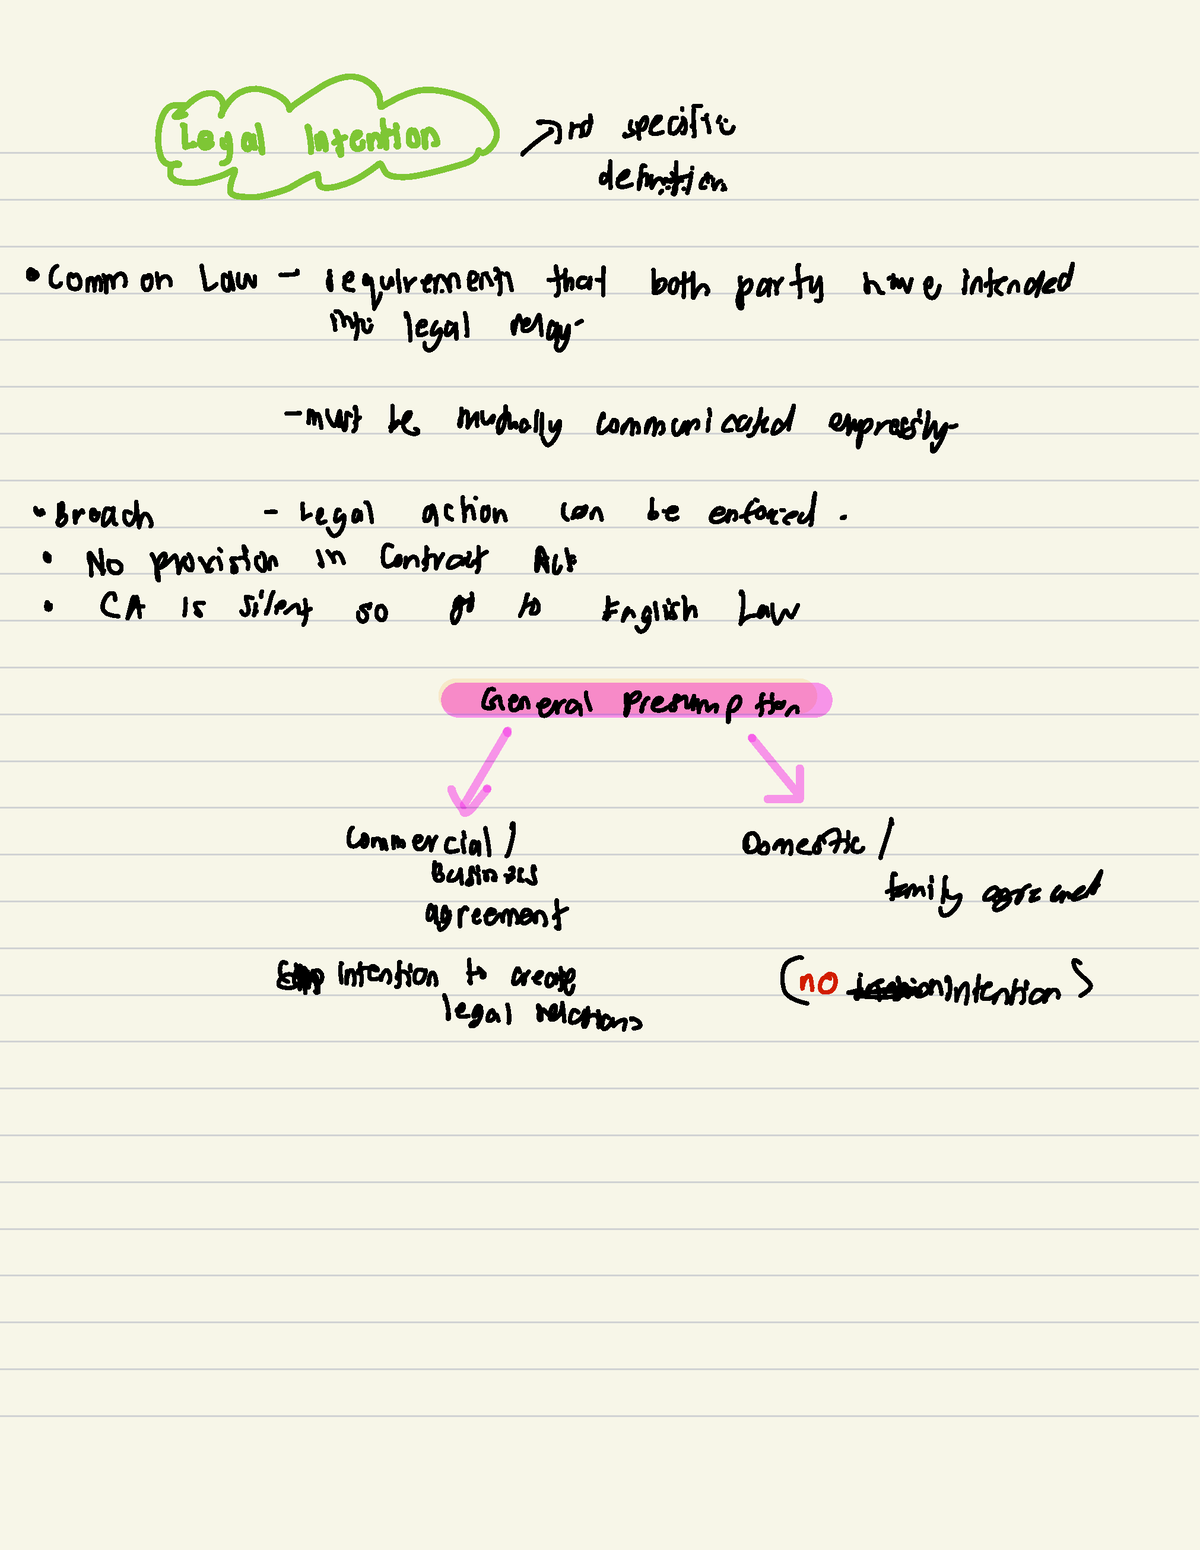 Legal Intention
no specific
definition
• Common Law - requirements that both party have intended
into legal relay-
- must be mutually communicated expressly
• Breach - Legal action can be enforced.
• No provision in Contract Act
• CA is silent so go to English Law
General Presumption
Commercial /
Business
agreement
Domestic /
family agreement
intention to create
legal relations
(no intention)